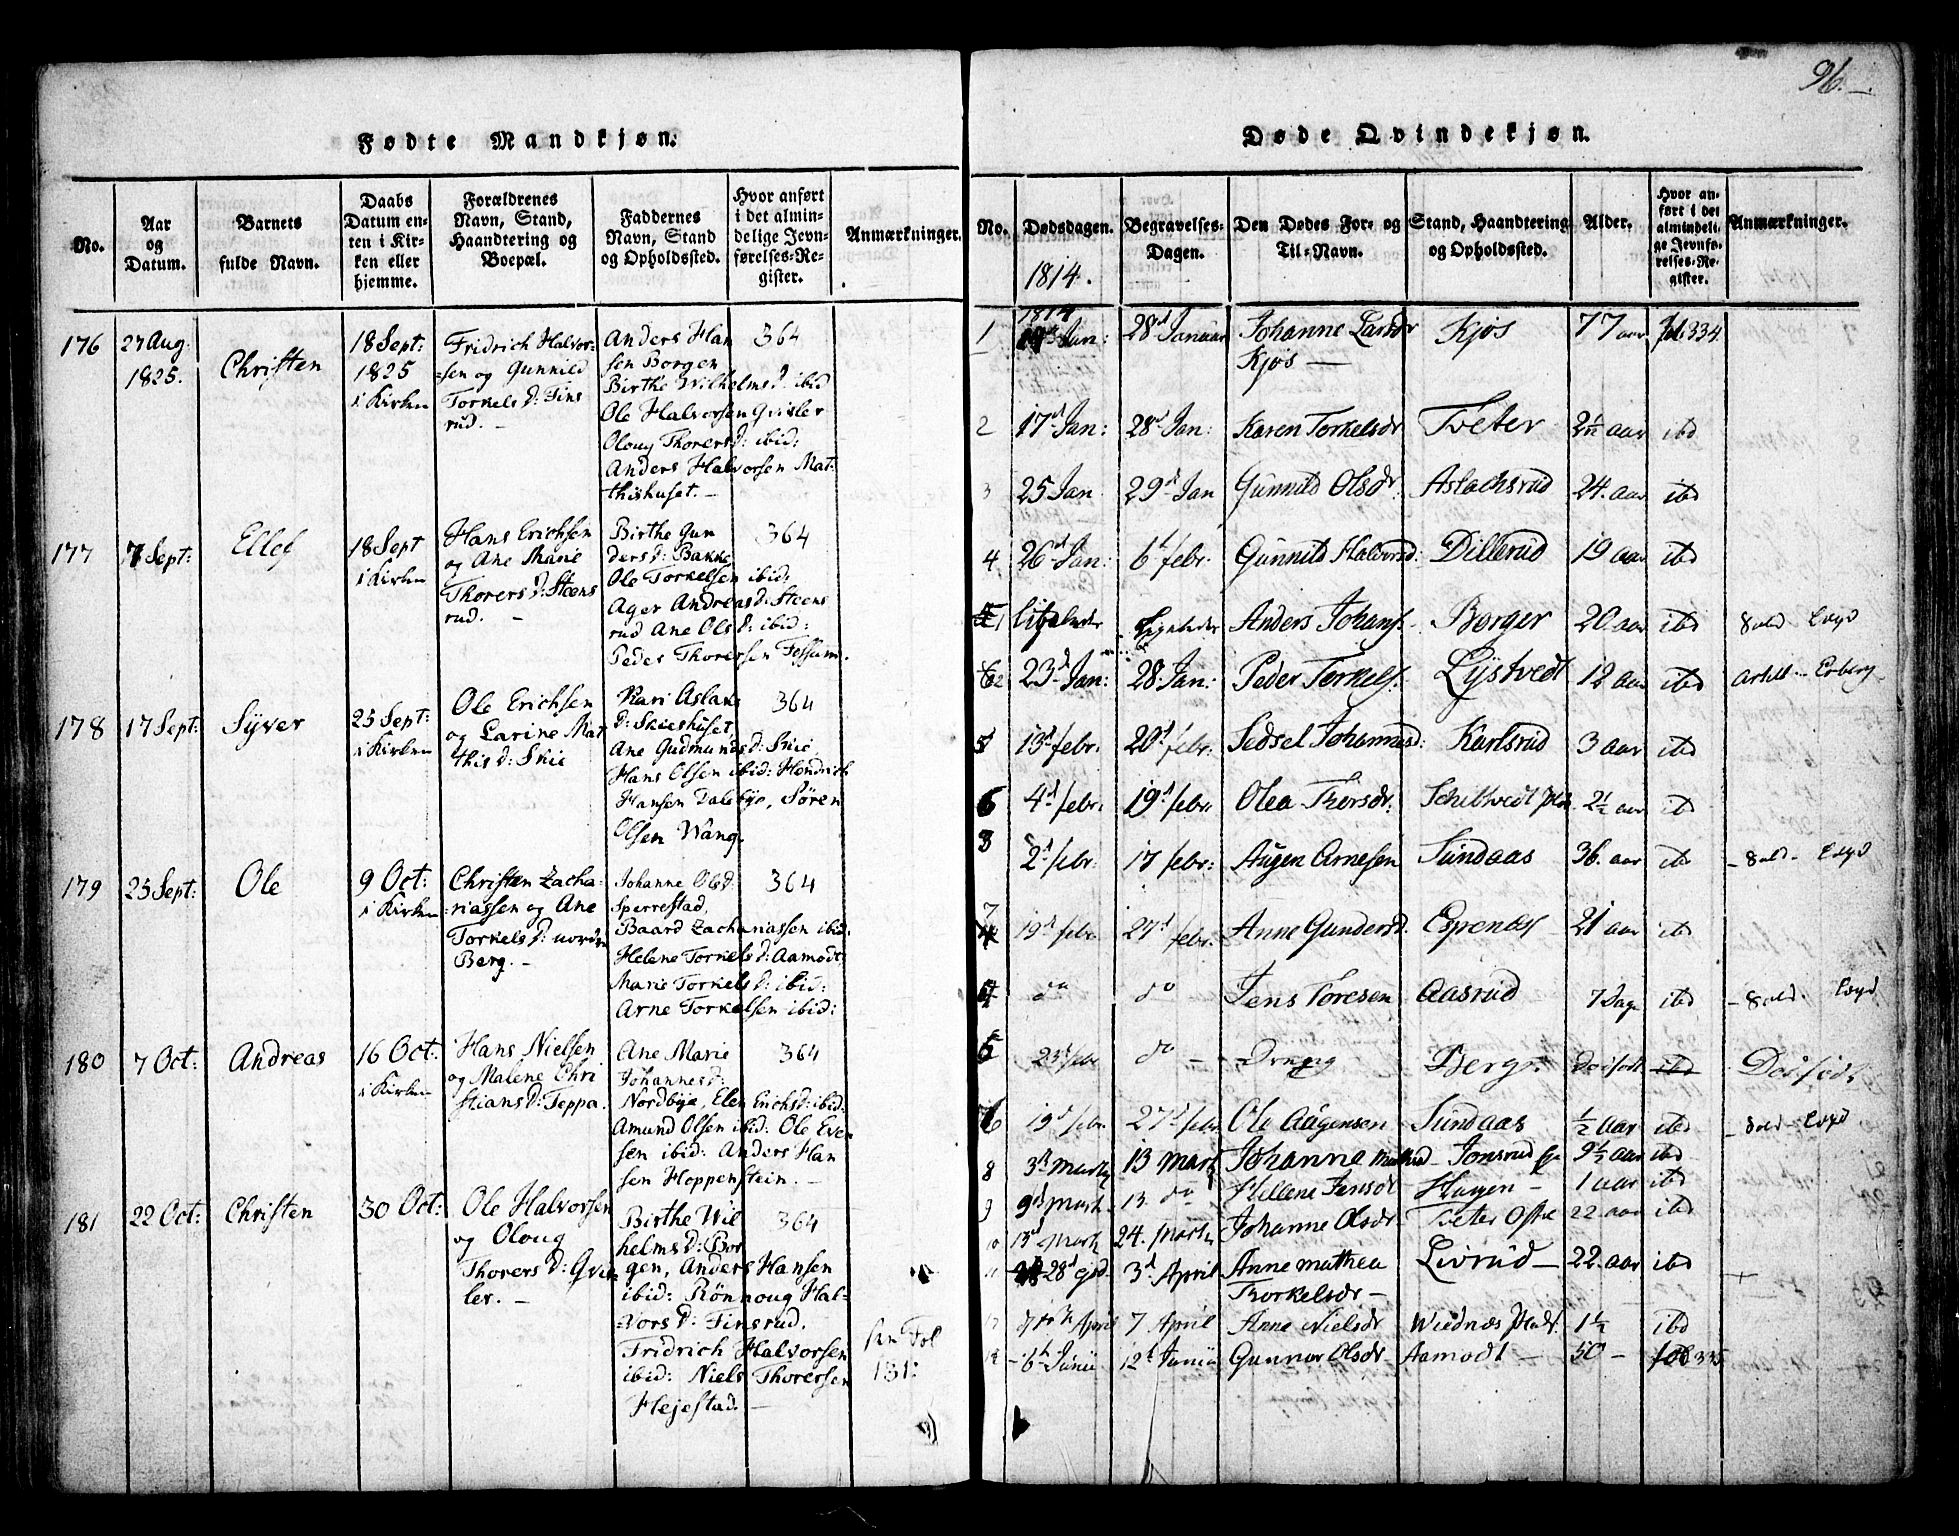 Fødte Mandkjøn.
No.
Aar
og
Datum.
Barnets
fulde Navn.
Daabs
Datum en-
ten i Kir-
ken eller
hjemme.
Forældrenes
Navn, Stand,
Haandtering og
Boepæl.
Faddernes
Navn, Stand
og Opholdssted.
Hvor anført
i det almin-
delige Jevn-
førelses-Re-
gister.
Anmærkninger.
176
27 Aug:
1825.
Christen
18 Sept:
1825
i Kirken
Fridrich Halvor-
sen og Gunnild
Torkels d: Fins
rud. -
Anders Han
sen Borgen
Birthe Wilhelms d: ibid
Ole Halvorsen Qvisler
Oloug Thorers d: ibid:
Anders Halvorsen Mat
thishuset. -
364
177
7 Sept:
Ellef
18 Sept
i Kirken
Hans Erichsen
og Ane Marie
Thorers d: Steens
rud. -
Birthe Gun
ders d: Bakke
Ole Torkelsen ibid:
Ager Andreas d: Steens
rud Ane Ols d: ibid:
Peder Thorersen Fossum.
364
178
17 Sept:
Syver
25 Sept:
i Kirken
Ole Erichsen
og Larine Mat
this d: Skie
Kari Aslak
d: Skieshuset,
Ane Gudmunds d: Skie,
Hans Olsen ibid: Hendrich
Hansen Dalsbye, Søren
Olsen Wang.
364
179
25 Sept:
Ole
9 Oct:
i Kirken
Christen Zacha-
riassen og Ane
Torkels d: nordre
Berg. -
Johanne Ols d:
Sperrestad,
Baard Zachariassen ibid:
Helene Torkels d: Aamodt,
Marie Torkels d: ibid:
Arne Torkelsen ibid:
364
180
7 Oct:
Andreas
16 Oct:
i Kirken
Hans Nielsen
og Malene Chri
stians d: Teppa.
Ane Marie
Johannes d:
Nordbye, Elen Erichs d: ibid:
Amund Olsen ibid: Ole Eve
sen ibid: Anders Han
sen Hoppenstein. -
364
181
22 Oct:
Christen
30 Oct:
Ole Halvorsen
og Oloug
Thorers d: Qvis
ler. -
Birthe Wil
helms d: Bor
gen, Anders Hansen
ibid: Rönnoug Hal-
vors d: Finsrud.
Fridrich Halvorsen
ibid: Niels Thorersen
Hejestad. -
364
Fol
131:
96.
Døde Qvindekjøn.
No.
Dødsdagen.
1814.
Begravelses-
Dagen.
Den Dødes For- og
Til-Navn.
Stand, Haandtering
og Opholdssted.
Alder.
Hvor an-
ført i det
almindeli-
ge Jevnfø-
relses-Re-
gister.
Anmærkninger.
1814
1 Jan: 28 Januar Johanne Larsdr Kjos 77 aar fol 334
Kjos -
2 17 Jan: 28 Jan: Karen Torkelsdr Tveter aar ibd
3 25 Jan 29 Jan Gunnild Olsdr. Aslachsrud 24. aar ibd
4 26 Jan: 6 febr. Gunnild Halvorsd: Dillerud 19 aar ibd
Anders Johans. Borger 20 aar ibd
23 Jan: 28 Jan: Peder Torkels. Lystvedt 12 aar ibd
5 13 febr. 20 febr. Sedsel Johannesd: Karlsrud 3 aar ibd
6 4 febr. 19 febr. Olea Thorsdr. 2½ aar ibd
3 2 febr. 17 febr: Augen Arnesen Sundaas 36. aar ibd
7 19 febr 27 febr. Anne Gundersd. Espenes 21 aar ibd
do do Jens Toresen Aasrud 7 Dage ibd
23 febr do - Berg Dødfødt ibd Dødfødt
6 19 febr 27 febr Ole Augensen Sundaas ½ aar ibd
8 3 Marts 13 Marts Johanne Jonsrud 9½ aar ibd
9 9 Marts 13 do Hellene Jensdr Haugen - 1 aar ibd
10 13 Marts 24. Marts Johanne Olsdr Tveter Østre 22 aar ibd
11 28 3 April Anne Mathea Livrud - 22 aar ibd
Thorkelsdr -
April 7 April Anne Nielsdr 1½ ibd
6 Junii 12 Junii Gunnor Olsdr Aamodt - 50 - fol 335